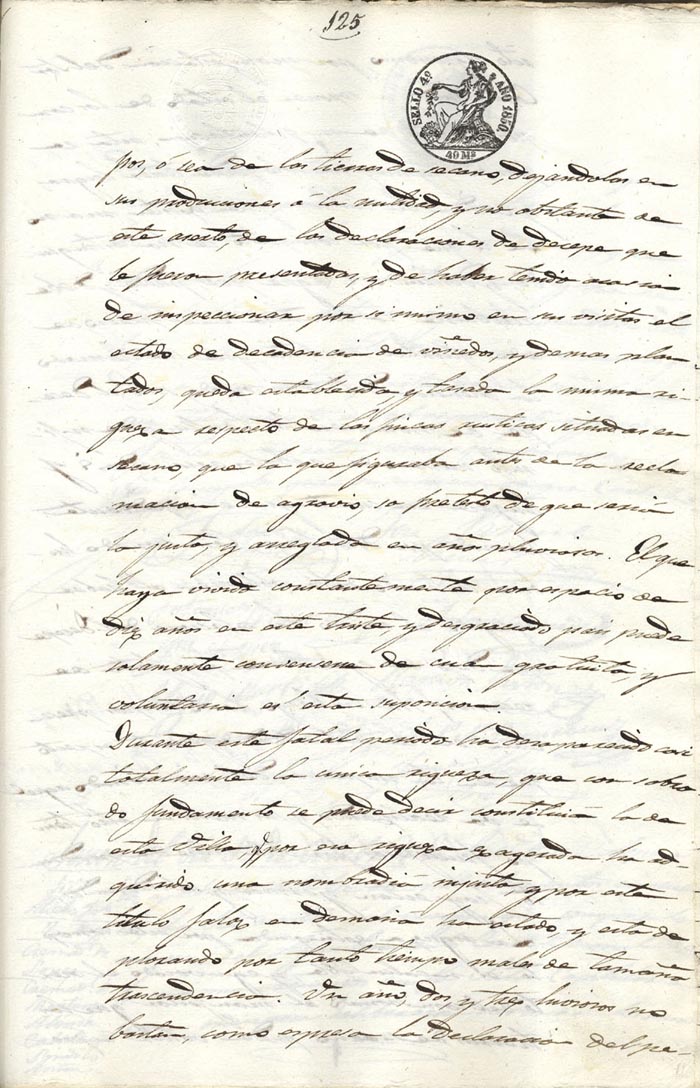 125
SELLO 4º AÑO 1850.
40 Ms
pos, ó sea de las tierras de secano, dejandolas en
sus producciones á la nulidad, y no obstante de
este aserto, de las declaraciones de
le fueron presentadas, y de haber tenido ocasion
de inspeccionar por si mismo en sus visitas el
estado de decadencia de viñedos, y demas plan
tados, queda establecida y tasada la misma ri-
queza respecto de las fincas rusticas situadas en
secano, que la que figuraba antes de la recla
macion de agravio, so pretesto de que seria
lo justo, y arreglado en años pluviosos. El que
haya vivido constantemente por espacio de
diez años en este triste, y desgraciado pais puede
solamente convenserse de cuan gratuita y
voluntaria es esta suposicion.
Durante este fatal periodo ha desaparecido casi
totalmente la unica riqueza, que con sobra
do fundamento se puede decir constituia la de
esta Villa, por esa riqueza exagerada ha ad-
quirido una nombradia injusta, y por este
titulo falaz en demasia ha estado y esta de
plorando por tanto tiempo males de tamaña
trascendencia. Un año, dos, y tres lluviosos no
bastan, como espresa la declaracion del pe-